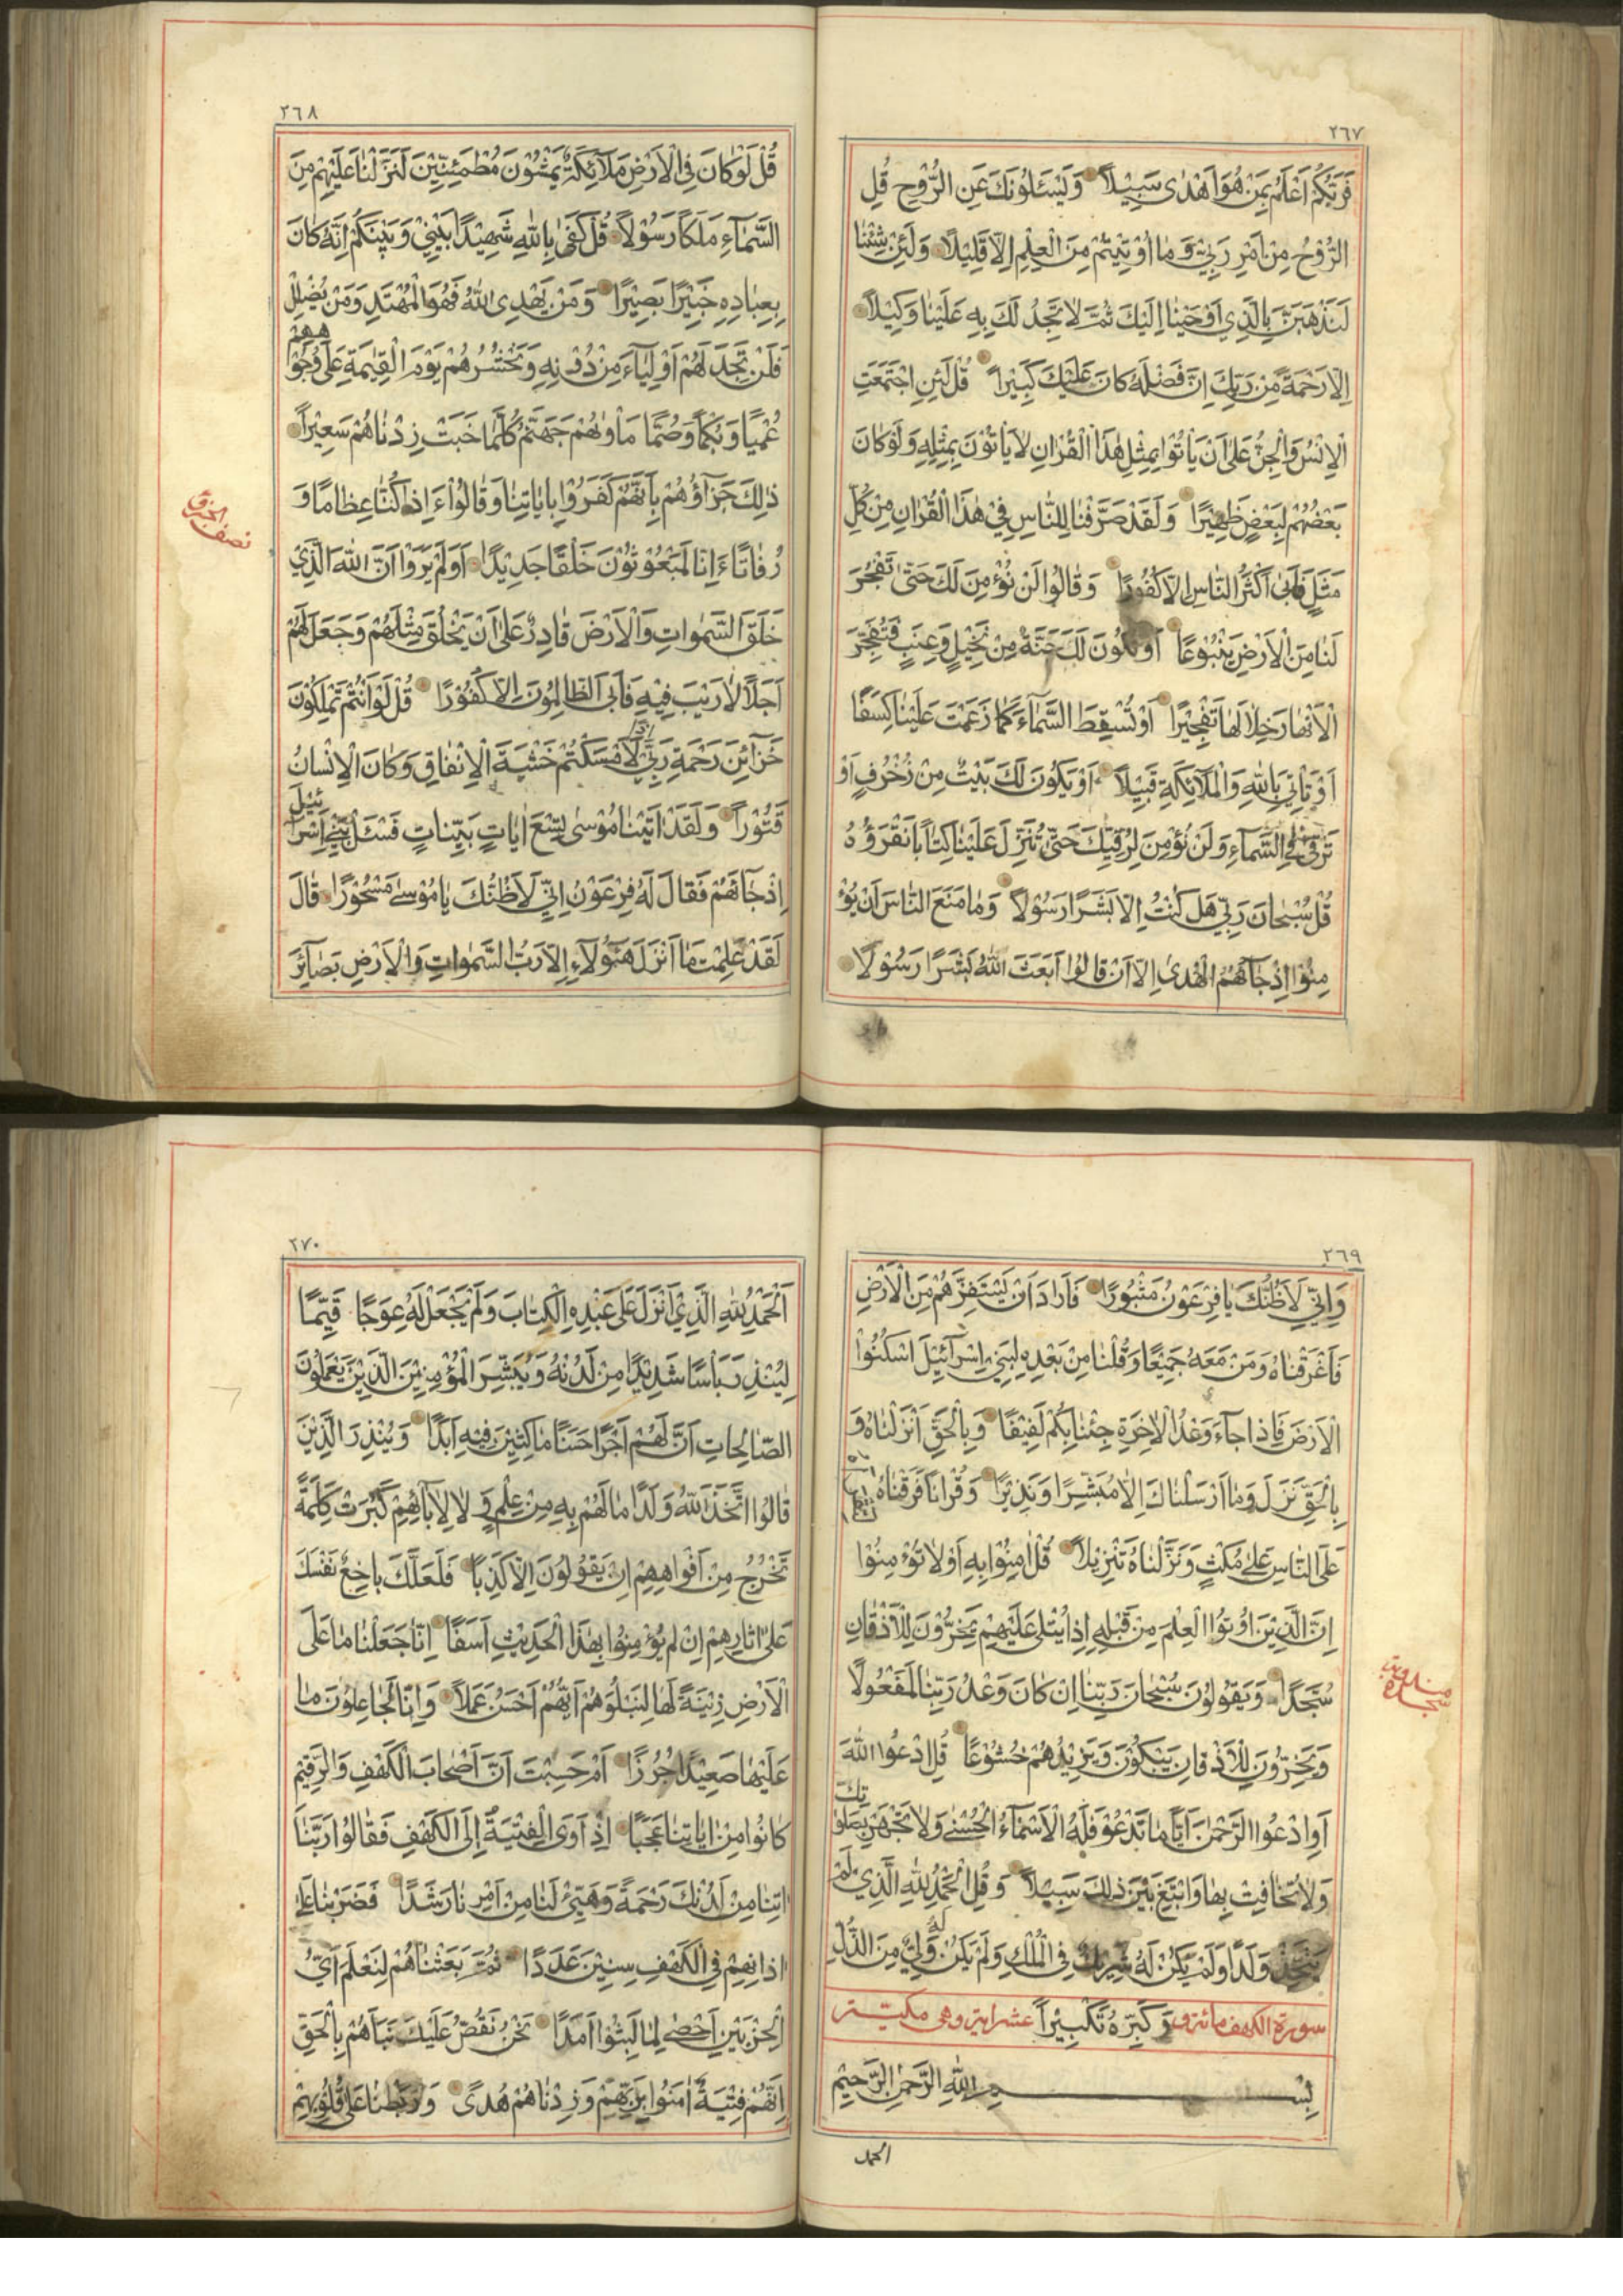 ٢٦٧
فَرَبُّكُمْ اَعْلَمُ بِمَنْ هُوَ اَهْدٰى سَبِيْلاً وَيَسْئَلُونَكَ عَنِ الرُّوْحِ قُلِ
الرُّوْحُ مِنْ اَمْرِ رَبِّيْ وَمَا اُوْتِيْتُمْ مِنَ الْعِلْمِ اِلاَّ قَلِيْلاً وَلَئِنْ شِئْنَا
لَنَذْهَبَنَّ بِالَّذِي اَوْحَيْنَا اِلَيْكَ ثُمَّ لَا تَجِدُ لَكَ بِهِ عَلَيْنَا وَكِيْلاً
اِلاَّ رَحْمَةً مِنْ رَبِّكَ اِنَّ فَضْلَهُ كَانَ عَلَيْكَ كَبِيْراً قُلْ لَئِنِ اجْتَمَعَتِ
الْاِنْسُ وَالْجِنُّ عَلٰى اَنْ يَأْتُوا بِمِثْلِ هٰذَا الْقُرْاٰنِ لَا يَأْتُوْنَ بِمِثْلِهِ وَلَوْ كَانَ
بَعْضُهُمْ لِبَعْضٍ ظَهِيْرًا وَلَقَدْ صَرَّفْنَا لِلنَّاسِ فِيْ هٰذَا الْقُرْاٰنِ مِنْ كُلِّ
مَثَلٍ فَاَبٰى اَكْثَرُ النَّاسِ اِلاَّ كُفُورًا وَقَالُوا لَنْ نُؤْمِنَ لَكَ حَتّٰى تَفْجُرَ
لَنَا مِنَ الْاَرْضِ يَنْبُوْعًا اَوْ تَكُوْنَ لَكَ جَنَّةٌ مِنْ نَخِيْلٍ وَعِنَبٍ فَتُفَجِّرَ
الْاَنْهَارَ خِلَالَهَا تَفْجِيْرًا اَوْ تُسْقِطَ السَّمَآءَ كَمَا زَعَمْتَ عَلَيْنَا كِسَفًا
اَوْ تَأْتِيَ بِاللّٰهِ وَالْمَلٰٓائِكَةِ قَبِيْلاً اَوْ يَكُوْنَ لَكَ بَيْتٌ مِنْ زُخْرُفٍ اَوْ
تَرْقٰى فِي السَّمَآءِ وَلَنْ نُؤْمِنَ لِرُقِيِّكَ حَتّٰى تُنَزِّلَ عَلَيْنَا كِتَابًا نَقْرَؤُهُ
قُلْ سُبْحَانَ رَبِّيْ هَلْ كُنْتُ اِلاَّ بَشَرًا رَسُوْلاً وَمَا مَنَعَ النَّاسَ اَنْ يُؤْ
مِنُوْا اِذْ جَآءَهُمُ الْهُدٰى اِلاَّ اَنْ قَالُوْا اَبَعَثَ اللّٰهُ بَشَرًا رَسُوْلًا
٢٦٨
قُلْ لَوْ كَانَ فِى الْاَرْضِ مَلٰٓائِكَةٌ يَمْشُوْنَ مُطْمَئِنِّيْنَ لَنَزَّلْنَا عَلَيْهِمْ مِنَ
السَّمَآءِ مَلَكًا رَسُوْلاً قُلْ كَفٰى بِاللّٰهِ شَهِيْدًا بَيْنِيْ وَبَيْنَكُمْ اِنَّهُ كَانَ
بِعِبَادِهِ خَبِيْرًا بَصِيْرًا وَمَنْ يَهْدِى اللّٰهُ فَهُوَ الْمُهْتَدِ وَمَنْ يُضْلِلْ
فَلَنْ تَجِدَ لَهُمْ اَوْلِيَآءَ مِنْ دُوْنِهِ وَنَحْشُرُهُمْ يَوْمَ الْقِيٰمَةِ عَلٰى وُجُوْ
هِهِمْ
عُمْيًا وَبُكْمًا وَصُمًّا مَأْوٰيهُمْ جَهَنَّمُ كُلَّمَا خَبَتْ زِدْنَاهُمْ سَعِيْرًا
ذٰلِكَ جَزَآؤُهُمْ بِاَنَّهُمْ كَفَرُوْا بِاٰيَاتِنَا وَقَالُوْا ءَاِذَا كُنَّا عِظَامًا وَ
رُفَاتًا ءَاِنَّا لَمَبْعُوْثُوْنَ خَلْقًا جَدِيْدًا اَوَلَمْ يَرَوْا اَنَّ اللّٰهَ الَّذِيْ
نصف الحزب
خَلَقَ السَّمٰوَاتِ وَالْاَرْضَ قَادِرٌ عَلٰى اَنْ يَخْلُقَ مِثْلَهُمْ وَجَعَلَ لَهُمْ
اَجَلًا لَا رَيْبَ فِيْهِ فَاَبَى الظَّالِمُوْنَ اِلاَّ كُفُوْرًا قُلْ لَوْ اَنْتُمْ تَمْلِكُوْنَ
خَزَآئِنَ رَحْمَةِ رَبِّيْ اِذًا لَاَمْسَكْتُمْ خَشْيَةَ الْاِنْفَاقِ وَكَانَ الْاِنْسَانُ
قَتُوْرًا وَلَقَدْ اٰتَيْنَا مُوْسٰى تِسْعَ اٰيَاتٍ بَيِّنَاتٍ فَسْئَلْ بَنِيْ اِسْرَآ
ئِيْلَ
اِذْ جَآئَهُمْ فَقَالَ لَهُ فِرْعَوْنُ اِنِّيْ لَاَظُنُّكَ يَا مُوْسٰى مَسْحُوْرًا قَالَ
لَقَدْ عَلِمْتَ مَا اَنْزَلَ هٰٓؤُلَآءِ اِلاَّ رَبُّ السَّمٰوَاتِ وَالْاَرْضِ بَصَآئِرَ
٢٦٩
وَاِنِّيْ لَاَظُنُّكَ يَا فِرْعَوْنُ مَثْبُورًا فَاَرَادَ اَنْ يَسْتَفِزَّهُمْ مِنَ الْاَرْضِ
فَاَغْرَقْنَاهُ وَمَنْ مَعَهُ جَمِيْعًا وَقُلْنَا مِنْ بَعْدِهِ لِبَنِيْ اِسْرَآئِيْلَ اسْكُنُوْا
الْاَرْضَ فَاِذَا جَآءَ وَعْدُ الْاٰخِرَةِ جِئْنَا بِكُمْ لَفِيْفًا وَبِالْحَقِّ اَنْزَلْنَاهُ وَ
بِالْحَقِّ نَزَلَ وَمَا اَرْسَلْنَاكَ اِلاَّ مُبَشِّرًا وَنَذِيْرًا وَقُرْاٰنًا فَرَقْنَاهُ
عَلَى النَّاسِ عَلٰى مُكْثٍ وَنَزَّلْنَاهُ تَنْزِيْلاً قُلْ اٰمِنُوْا بِهِ اَوْ لَا تُؤْمِنُوْا
اِنَّ الَّذِيْنَ اُوْتُوا الْعِلْمَ مِنْ قَبْلِهِ اِذَا يُتْلٰى عَلَيْهِمْ يَخِرُّوْنَ لِلْاَذْقَانِ
سُجَّدًا وَيَقُوْلُوْنَ سُبْحَانَ رَبِّنَا اِنْ كَانَ وَعْدُ رَبِّنَا لَمَفْعُوْلًا
وَيَخِرُّوْنَ لِلْاَذْقَانِ يَبْكُوْنَ وَيَزِيْدُهُمْ خُشُوْعًا قُلِ ادْعُوا اللّٰهَ
اَوِ ادْعُوا الرَّحْمٰنَ اَيًّا مَا تَدْعُوْا فَلَهُ الْاَسْمَآءُ الْحُسْنٰى وَلَا تَجْهَرْ بِصَلَو
تِكَ
وَلَا تُخَافِتْ بِهَا وَابْتَغِ بَيْنَ ذٰلِكَ سَبِيْلاً وَقُلِ الْحَمْدُ لِلّٰهِ الَّذِيْ لَمْ
يَتَّخِذْ وَلَدًا وَلَمْ يَكُنْ لَهُ شَرِيْكٌ فِى الْمُلْكِ وَلَمْ يَكُنْ لَهُ وَلِيٌّ مِنَ الذُّلِّ
سورة الكهف مائة و وَكَبِّرْهُ تَكْبِيْرًا عشر اية وهى مكية
بِسْمِ اللّٰهِ الرَّحْمٰنِ الرَّحِيْمِ
الحمد
٢٧٠
اَلْحَمْدُ لِلّٰهِ الَّذِيْ اَنْزَلَ عَلٰى عَبْدِهِ الْكِتَابَ وَلَمْ يَجْعَلْ لَهُ عِوَجًا قَيِّمًا
لِيُنْذِرَ بَأْسًا شَدِيْدًا مِنْ لَدُنْهُ وَيُبَشِّرَ الْمُؤْمِنِيْنَ الَّذِيْنَ يَعْمَلُوْنَ
الصَّالِحَاتِ اَنَّ لَهُمْ اَجْرًا حَسَنًا مَاكِثِيْنَ فِيْهِ اَبَدًا وَيُنْذِرَ الَّذِيْنَ
قَالُوا اتَّخَذَ اللّٰهُ وَلَدًا مَا لَهُمْ بِهِ مِنْ عِلْمٍ وَلَا لِاٰبَآئِهِمْ كَبُرَتْ كَلِمَةً
تَخْرُجُ مِنْ اَفْوَاهِهِمْ اِنْ يَقُوْلُوْنَ اِلاَّ كَذِبًا فَلَعَلَّكَ بَاخِعٌ نَفْسَكَ
عَلٰى اٰثَارِهِمْ اِنْ لَمْ يُؤْمِنُوْا بِهٰذَا الْحَدِيْثِ اَسَفًا اِنَّا جَعَلْنَا مَا عَلَى
الْاَرْضِ زِيْنَةً لَهَا لِنَبْلُوَهُمْ اَيُّهُمْ اَحْسَنُ عَمَلاً وَاِنَّا لَجَاعِلُوْنَ مَا
عَلَيْهَا صَعِيْدًا جُرُزًا اَمْ حَسِبْتَ اَنَّ اَصْحَابَ الْكَهْفِ وَالرَّقِيْمِ
كَانُوْا مِنْ اٰيَاتِنَا عَجَبًا اِذْ اَوَى الْفِتْيَةُ اِلَى الْكَهْفِ فَقَالُوْا رَبَّنَا
اٰتِنَا مِنْ لَدُنْكَ رَحْمَةً وَهَيِّئْ لَنَا مِنْ اَمْرِنَا رَشَدًا فَضَرَبْنَا عَلٰى
اٰذَانِهِمْ فِى الْكَهْفِ سِنِيْنَ عَدَدًا ثُمَّ بَعَثْنَاهُمْ لِنَعْلَمَ اَيُّ
الْحِزْبَيْنِ اَحْصٰى لِمَا لَبِثُوْا اَمَدًا نَحْنُ نَقُصُّ عَلَيْكَ نَبَاَهُمْ بِالْحَقِّ
اِنَّهُمْ فِتْيَةٌ اٰمَنُوْا بِرَبِّهِمْ وَزِدْنَاهُمْ هُدًى وَرَبَطْنَا عَلٰى قُلُوْبِهِمْ